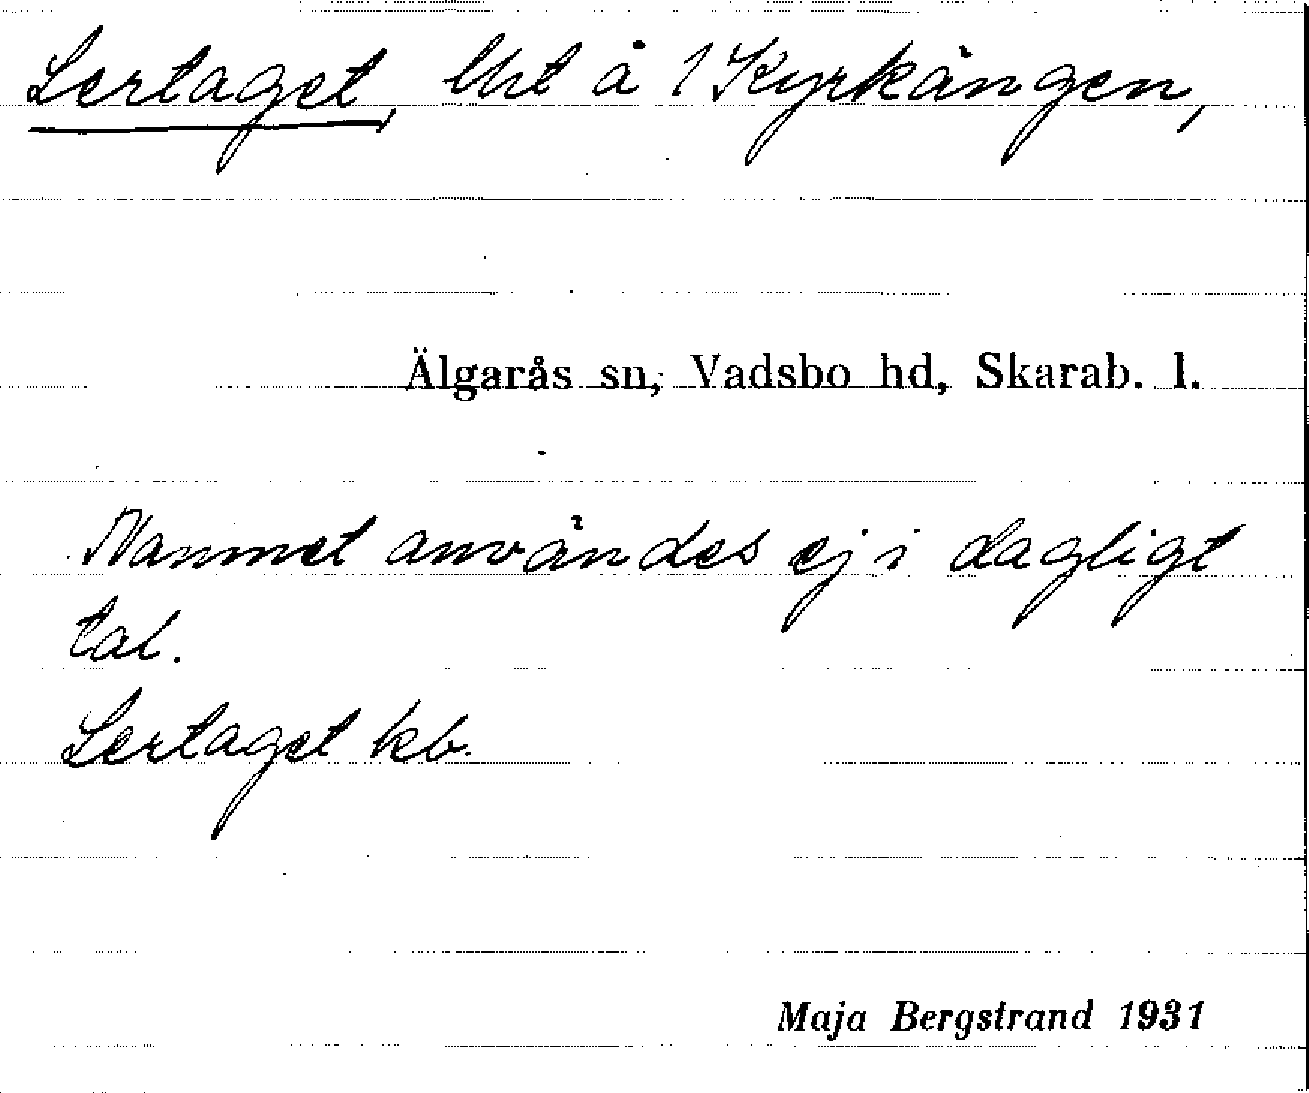 Lertaget, lht å 1 Kyrkängen,
Älgarås sn, Vadsbo hd, Skarab. l.
Namnet användes ej i dagligt
tal.
Lertaget kb.
Maja Bergstrand 1931